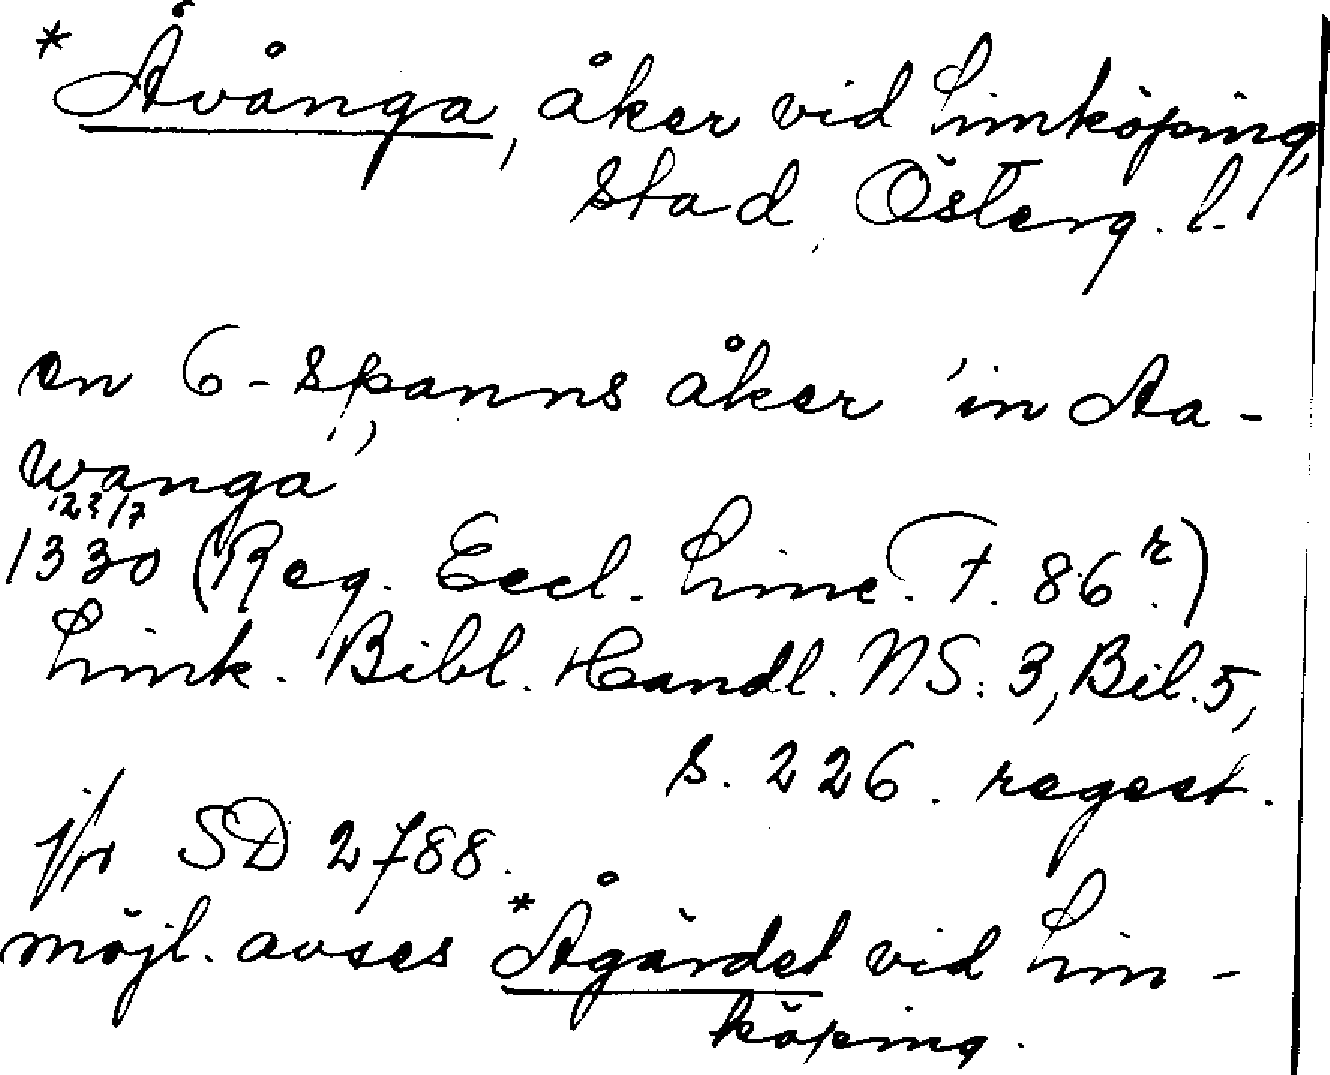 *Åvånga, åker vid Linköping,
stad, Österg. l.
en 6-spanns åker 'in Aa-
wanga'
23/7
1330 (Reg. Eccl. Linc. T. 86r)
Link. Bibl. Handl. NS. 3, Bil. 5,
s. 226. regest.
jfr SD 2788.
möjl. avses *Ågärdet vid Lin-
köping.